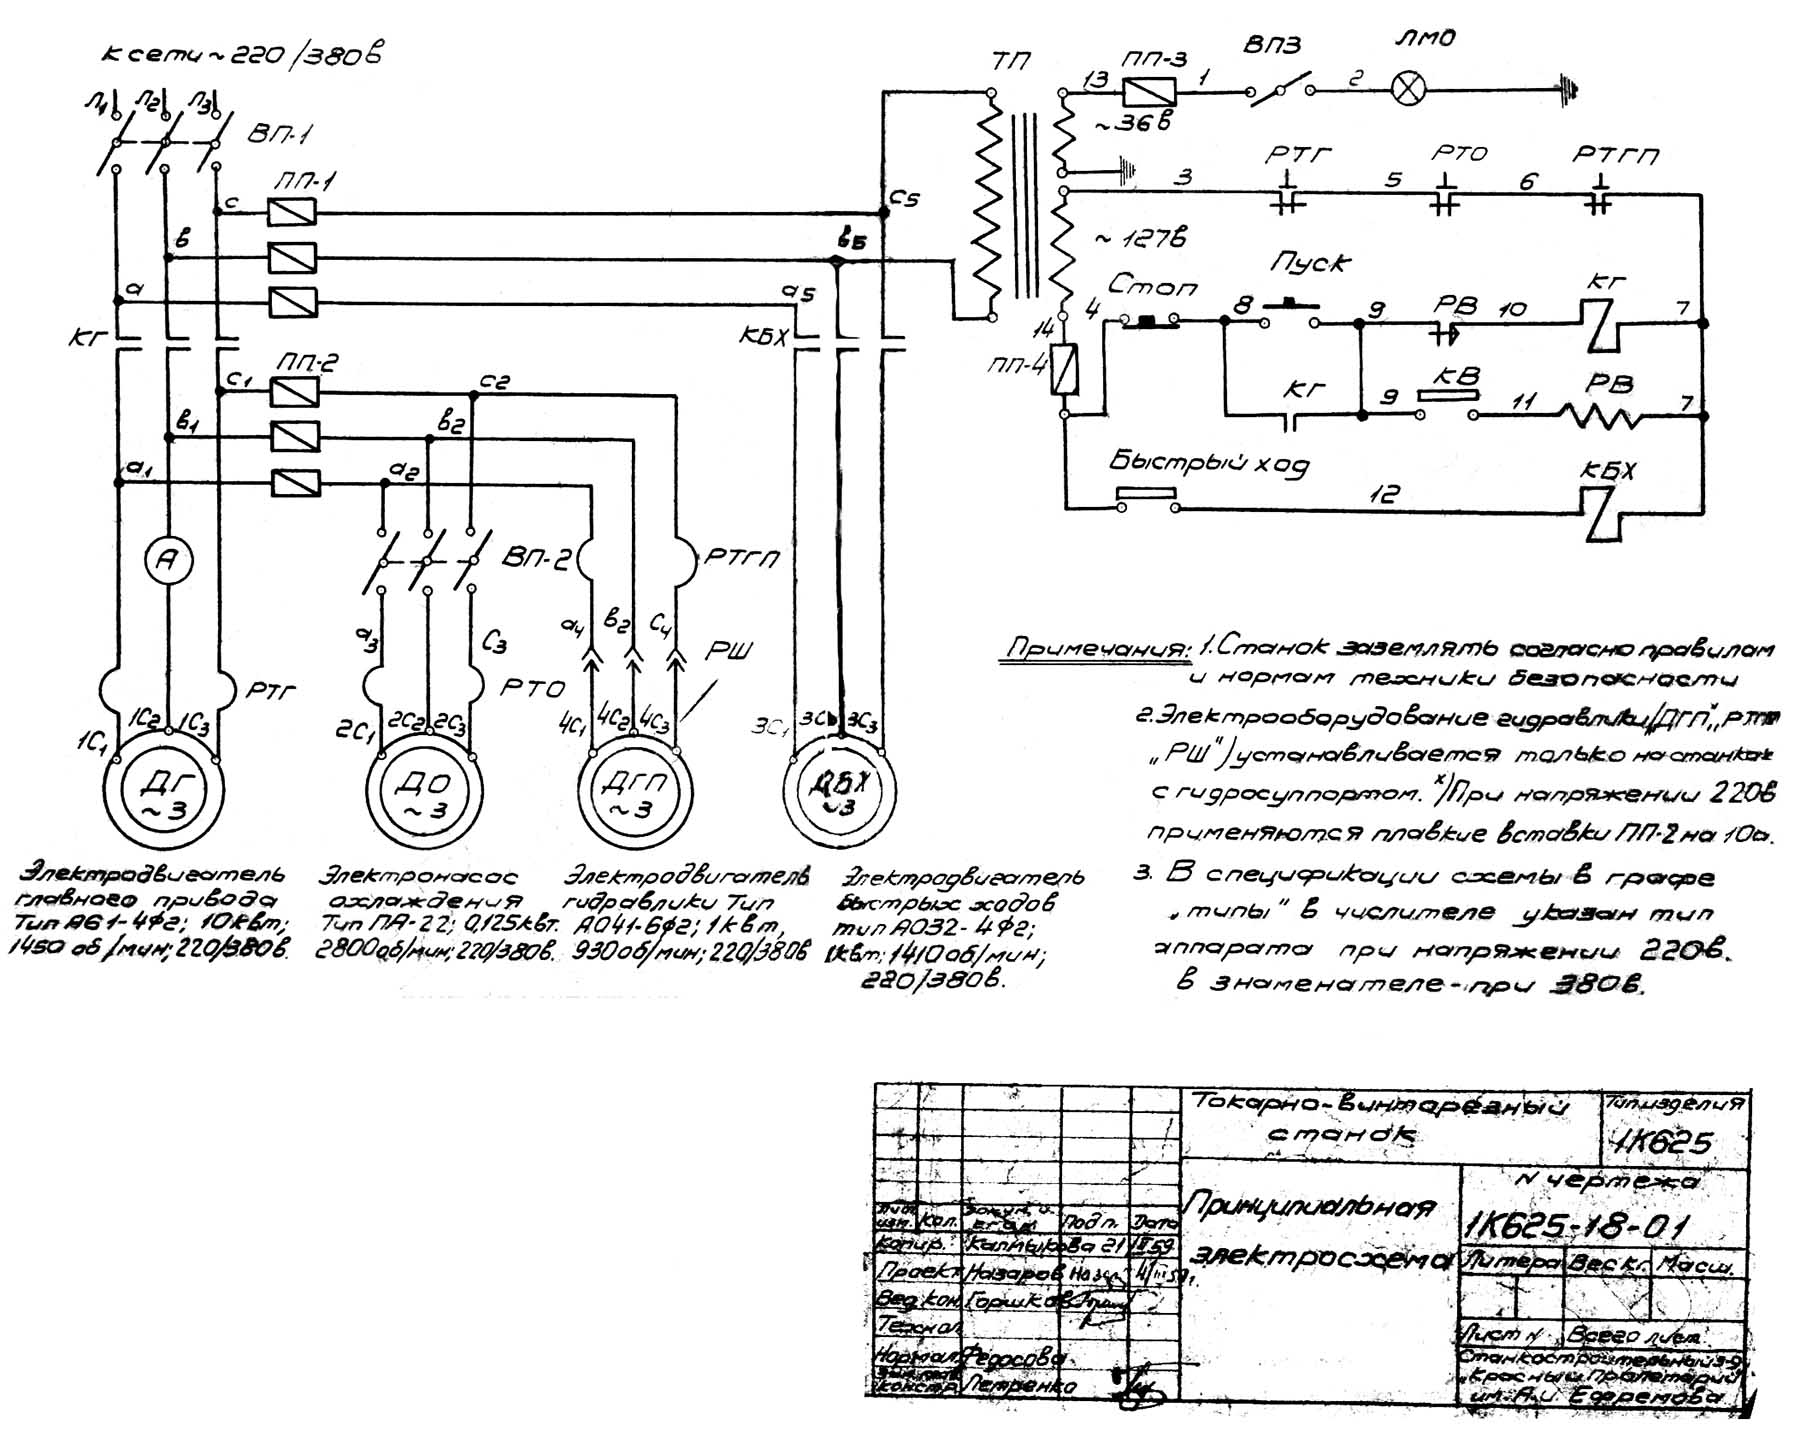 к сети ~ 220/380в
Л1 Л2 Л3
ВП-1
ПП-1
с
в
а
С5
вБ
а5
КГ
КБХ
ПП-2
С1
С2
в1
в2
а1
а2
А
ВП-2
РТГП
а3
С3
а4
в2
С4
РШ
РТГ
РТО
1С1 1С2 1С3
2С1 2С2 2С3
4С1 4С2 4С3
3С1 3С 3С3
ДГ
~3
ДО
~3
ДГП
~3
ДБХ
~3
ТП
13
ПП-3
1
ВП3
2
ЛМО
~36в
3
РТГ
5
РТО
6
РТГП
~127в
Стоп
4
8
Пуск
9
РВ
10
КГ
7
14
ПП-4
КГ
9
КВ
11
РВ
7
Быстрый ход
12
КБХ
Электродвигатель
главного привода
Тип А61-4Ф2; 10квт;
1450 об/мин; 220/380в.
Электронасос
охлаждения
Тип ПА-22; 0,125квт.
2800об/мин; 220/380в.
Электродвигатель
гидравлики Тип
АО41-6Ф2; 1квт,
930об/мин; 220/380в
Электродвигатель
быстрых ходов
тип АО32-4Ф2;
1квт; 1410об/мин;
220/380в.
Примечания: 1.Станок заземлять согласно правилам
и нормам техники безопасности
2.Электрооборудование гидравлики/„ДГП", „РТГП"
„РШ")устанавливается только на станках
с гидросуппортом. х)При напряжении 220в
применяются плавкие вставки ПП-2 на 10а.
3. В спецификации схемы в графе
„типы" в числителе указан тип
аппарата при напряжении 220в.
в знаменателе-при 380в.
Токарно-винторезный
станок
Тип изделия
1К625
Принципиальная
электросхема
N чертежа
1К625-18-01
Литера Вес кг. Масш.
Лист N Всего лист.
Станкостроительный з-д
„Красный пролетарий"
им. А.И. Ефремова
изм. Кол. Подп. Дата
Копир. Калмыкова 21 59
Проект Назаров
Вед кон. Горшков
Технол
Нормал. Федосова
констр. Петренко